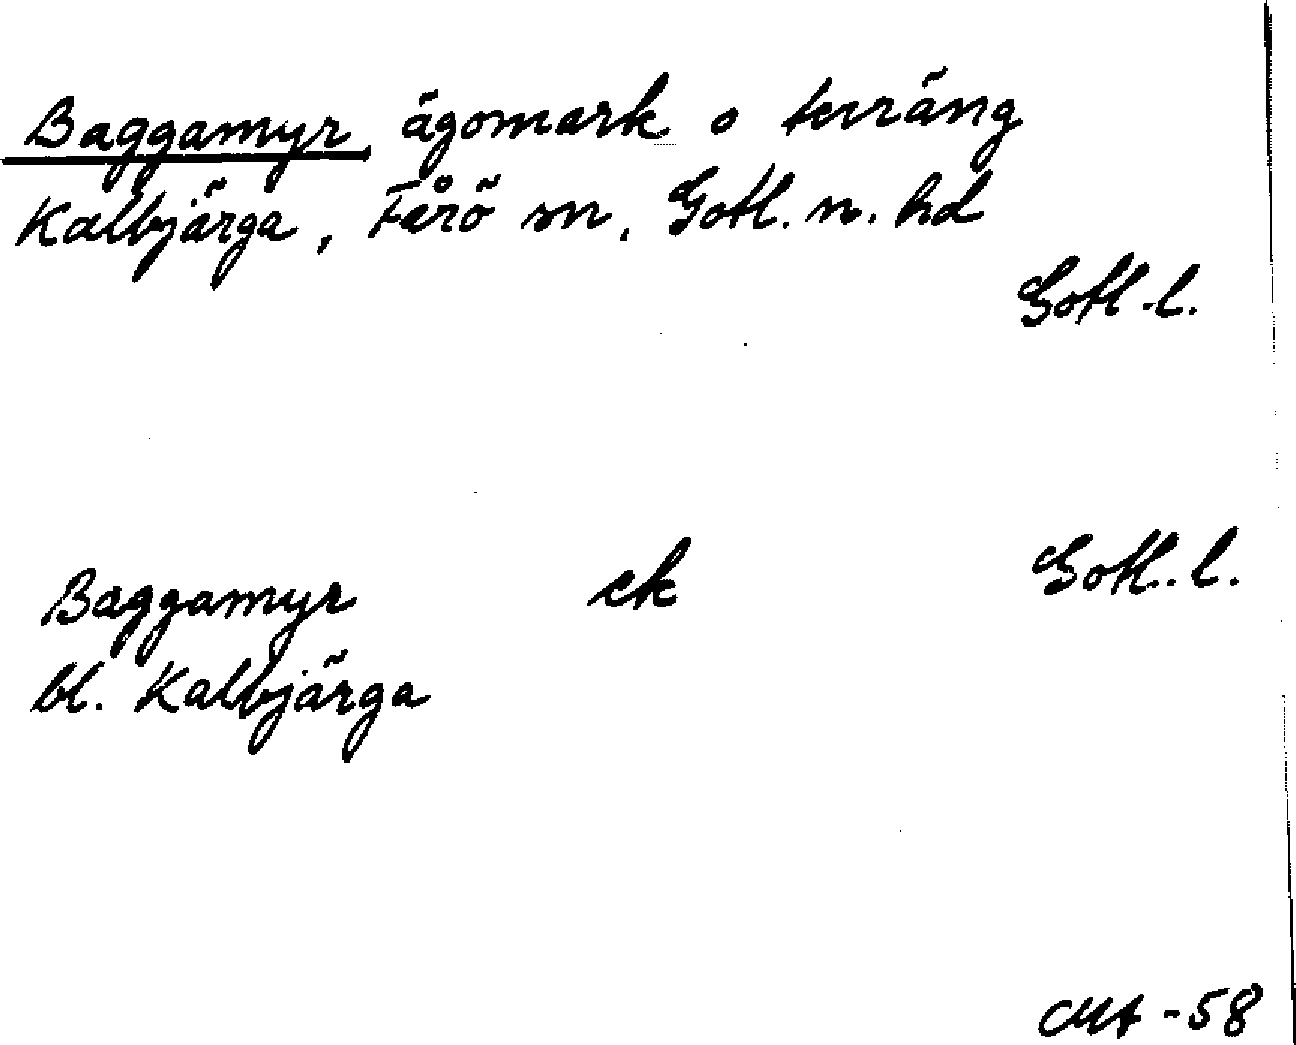 Baggamyr, ägomark o terräng
Kalbjärga, Fårö sn, Gotl. n. hd
Gotl. l.
Baggamyr ek Gotl. l.
bl. Kalbjärga
-58